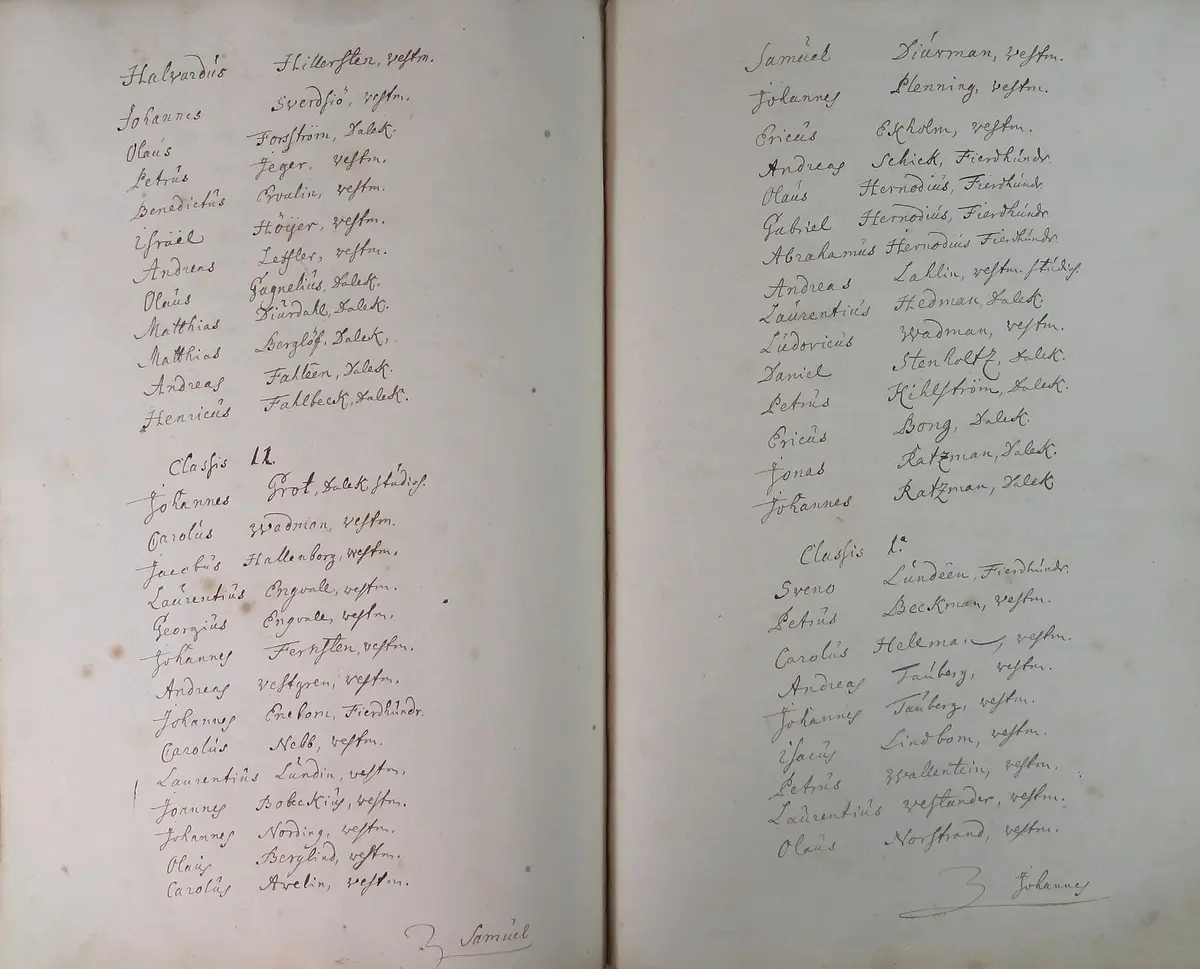 Halvardús Hillersten, vestm.
Johannes Sverdsiö, vestm.
Olaús Forsström, Dalek.
Petrús Jeger, vestm.
Benedictús Ervulin, vestm.
Israël Höijer, vestm.
Andreas Letsler, vestm.
Olaús Gagnelius, Dalek.
Matthias Diúrdahl, Dalek.
Matthias Berglöf, Dalek,
Andreas Fahleen, Dalek.
Henricús Fahlbeck, Dalek.
Classis 11.
Johannes Grot, Dalek. stúdios.
Carolús Wadman, vestm.
Jacobús Hallenborg, vestm.
Laúrentiús Engvale, vestm.
Georgiús Engvale, vestm.
Johannes Fernsten, vestm.
Andreas Vestgren, vestm.
Johannes Enebom, Fierdhúndr.
Carolús Nebb, vestm.
Laurentiús Lúndin, vestm.
Joannes Bobeckiús, vestm.
Johannes Nording, vestm.
Olaús Berglind, vestm.
Carolús Avelin, vestm.
Samúel
Samúel Diúrman, vestm.
Johannes Plenning, vestm.
Ericús Ekholm, vestm.
Andreas Schick, Fierdhúndr.
Olaús Hernodiús, Fierdhúndr.
Gabriel Hernodiús, Fierdhúndr.
Abrahamús Hernodiús Fierdhúndr.
Andreas Lahlin, vestm. stúdios.
Laúrentiús Hedman, Dalek.
Lúdovicús Wadman, vestm.
Daniel Stenholtz, Dalek.
Petrús Kihlström, Dalek.
Ericús Bong, Dalek.
Jonas Ratzman, Dalek.
Johannes Ratzman, Dalek
Classis 1.a
Sveno Lúndéen, Fierdhúndr.
Petrús Beckman, vestm.
Carolús Helleman, vestm.
Andreas Taúberg, vestm.
Johannes Taúberg, vestm.
Isacús Lindbom, vestm.
Petrús Wallentein, vestm.
Laúrentiús vestander, vestm.
Olaús Norstrand, vestm.
Johannes